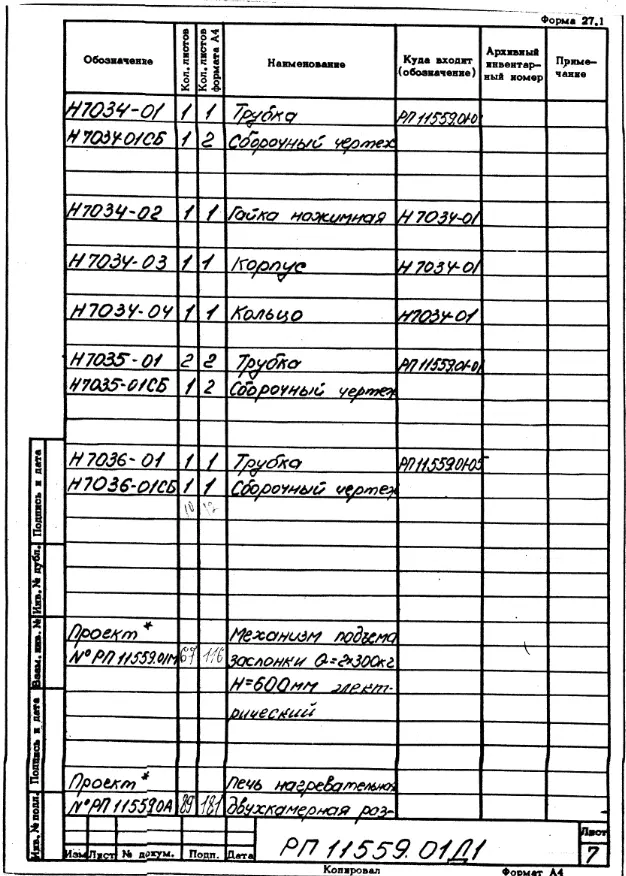 Форма 27.1
Обозначение Кол. листов Кол. листов формата А4 Наименование Куда входит (обозначение) Архивный инвентарный номер Примечание
Н7034-01 1 1 Трубка РП11559.01-0
Н7034-01СБ 1 2 Сборочный чертеж
Н7034-02 1 1 Гайка нажимная Н7034-01
Н7034-03 1 1 Корпус Н7034-01
Н7034-04 1 1 Кольцо Н7034-01
Н7035-01 2 2 Трубка РП11559.01-0
Н7035-01СБ 1 2 Сборочный чертеж
Н7036-01 1 1 Трубка РП11559.01-05
Н7036-01СБ 1 1 Сборочный чертеж
10 12
Проект* Механизм подъема
№РП11559.01М 69 116 заслонки Q=2х300кг
Н=600мм элект-
рический
Проект* Печь нагревательная
№РП11559.0А 89 181 двухкамерная раз-
Инв. № подл. Подпись и дата Взам. инв. № Инв. № дубл. Подпись и дата
Изм Лист № докум. Подп. Дата
РП 11559.01Д1
Лист
7
Копировал Формат А4